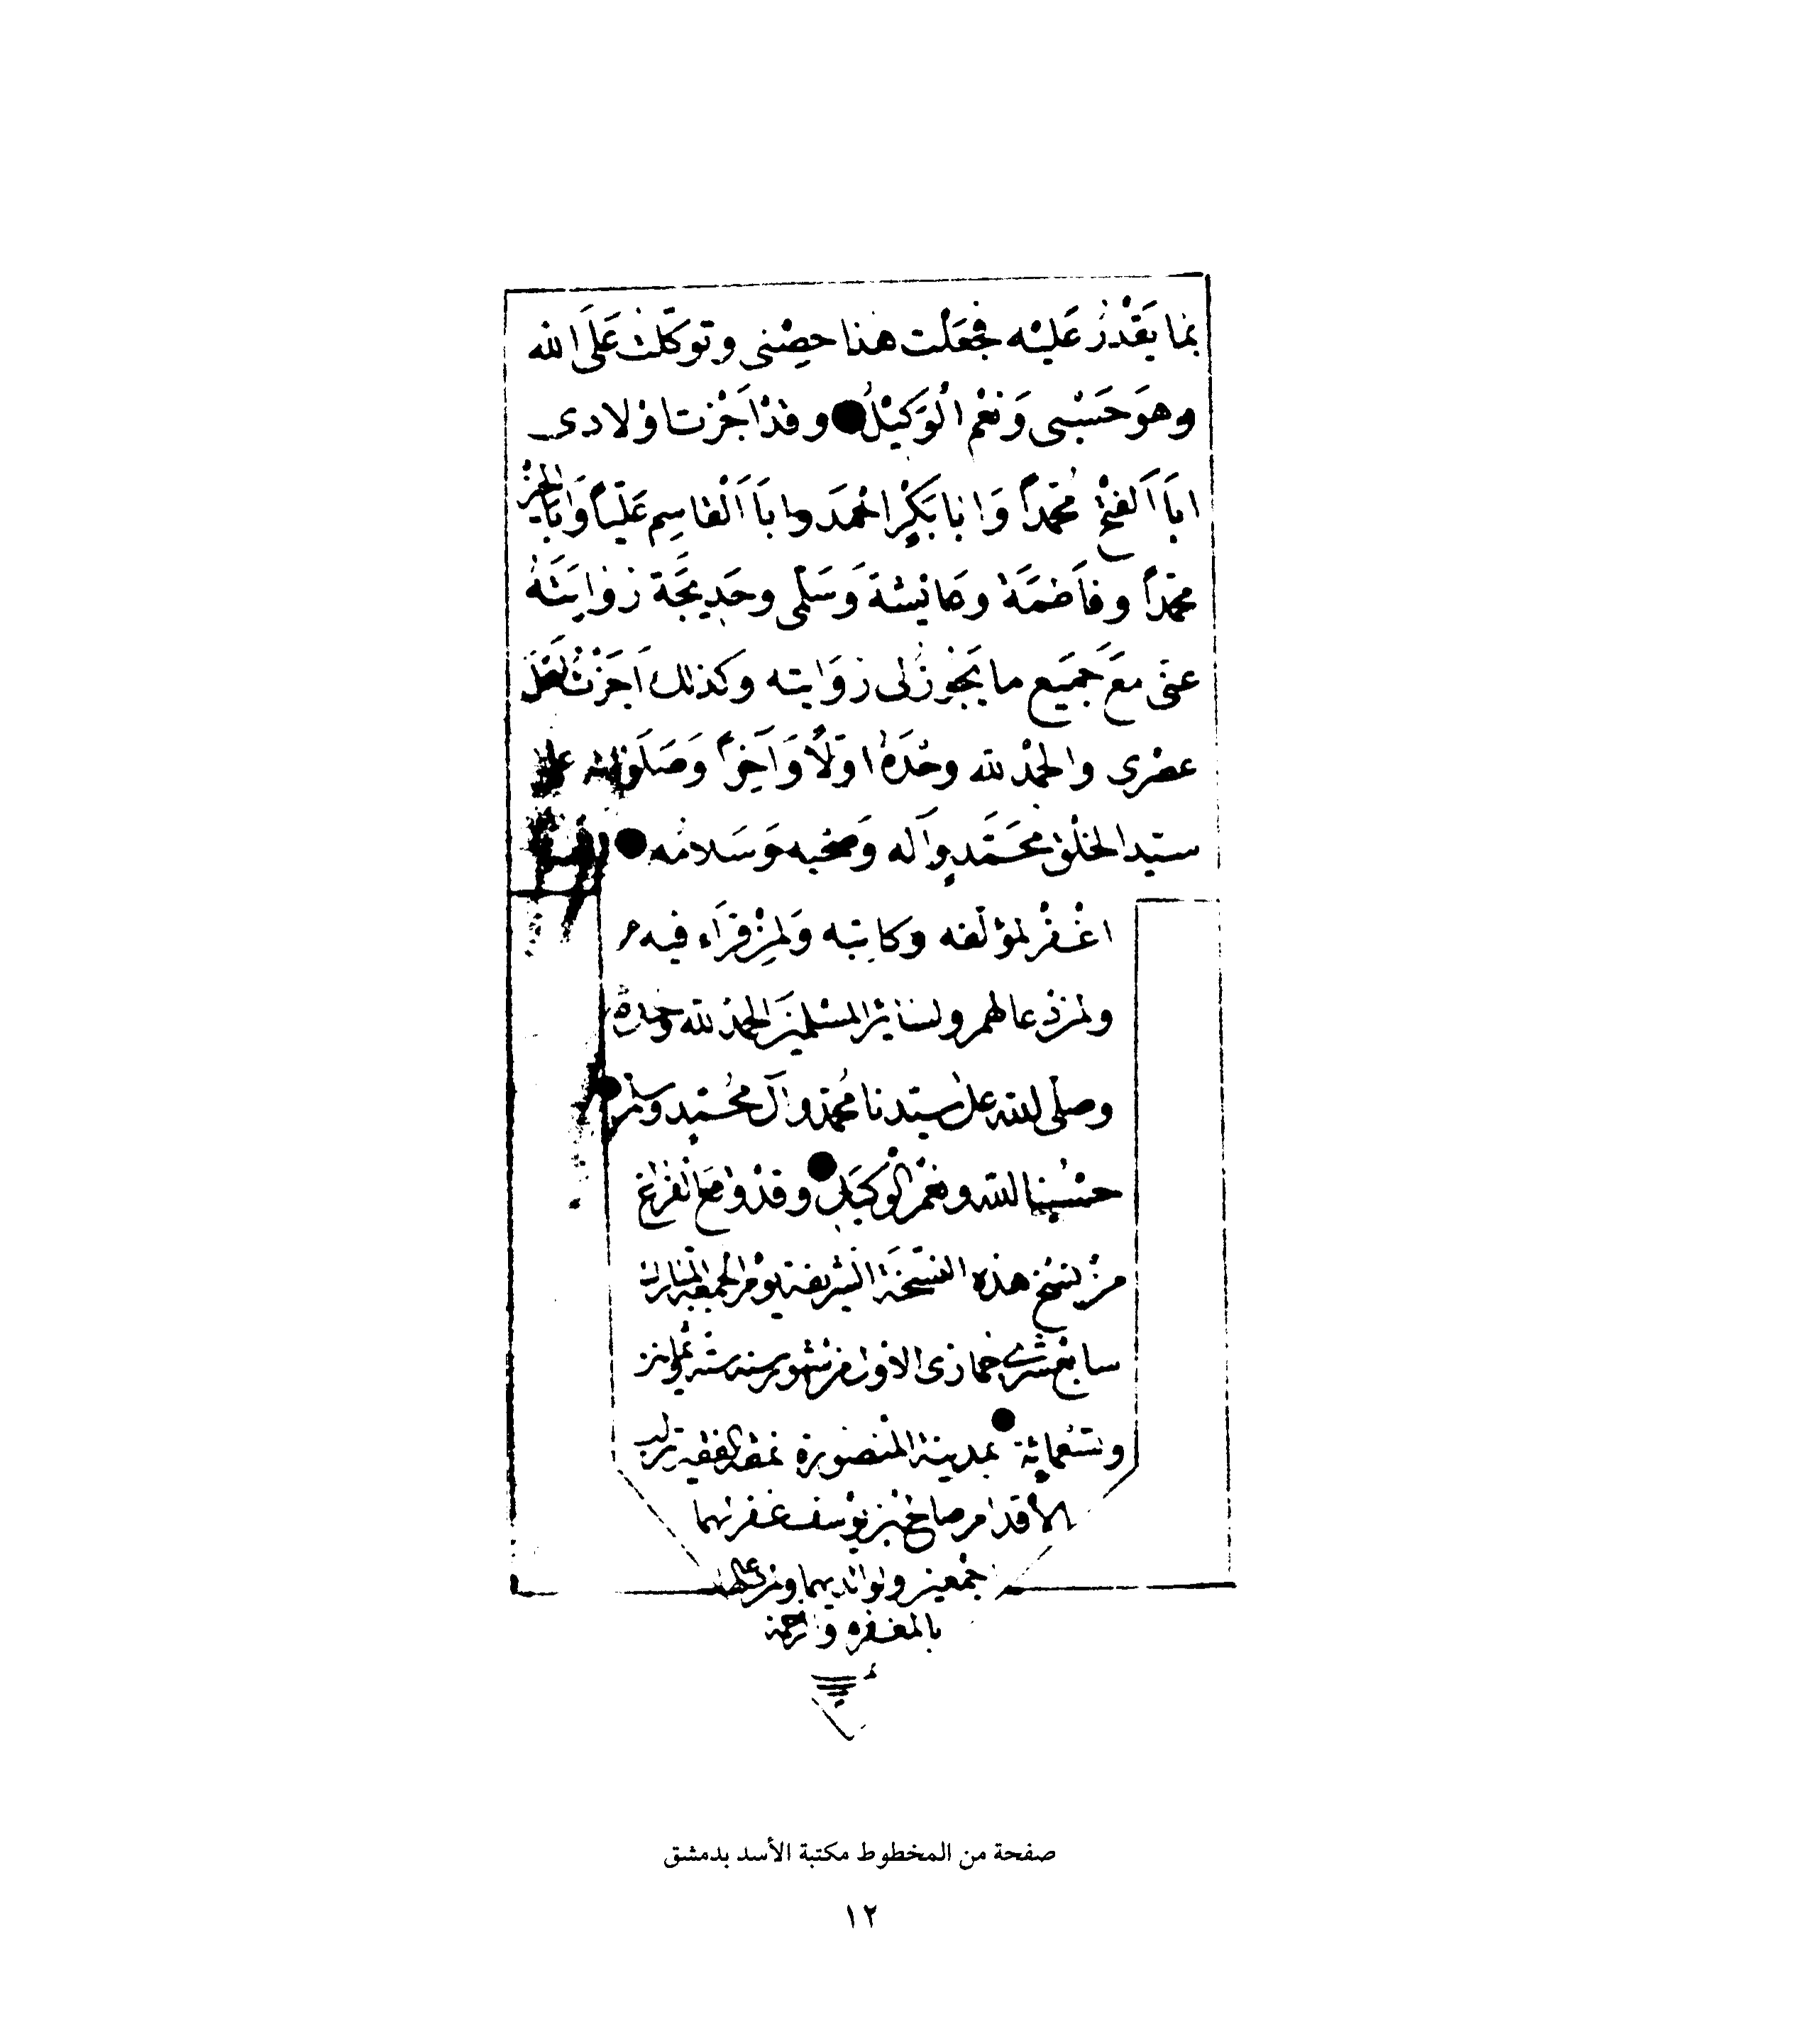 بما يَقْدرُ عَليْه فجعَلْت هذا حصِنى وتوكّلت عَلَى الله
وهوَ حَسْبى وَنعْم الْوَكيْلُ وقدْ اَجْزت اوْلادى
ابَا اَلفتْح مُحمّداً وَابا بَكْرٍ احْمدَ وابَا اَلْقاسِم عَليّاً وَابَا الخيْر
محمّداً وفاَطمَةَ وعائشة وَسَلْمى وخَديجَة رِوايتَهُ
عنى معَ جَميَع ما يَجُوز لى رِوَايته وكذلك اَجَزْتُ لاهْل
عصْرى والحمْد لله وحْدَهُ اوّلاً وَآخِراً وَصَلَوته على
سيّد الخلْق محَمَّدٍ وآله وَصحْبه وَسَلامُه
اغْفرْ لمؤلّفه وكاتبه وَلمِنْ قرَاء فيه
ولمن دْعا لهم ولسائر المسْلمينَ الحمْدُ لله وحْدهُ
وصلى الله على سيّدنا مُحمّد وآل محُمّدٍ وسلم
حسْبُنا الله ونعْمَ الوْكيَل وقدْ وقعَ الْفرَاغ
منْ نسْخ هذه النسّخَة الشّريفة يوْم الجمعة المباركة
سابع عشرى جمادى الاوْل من شهور سنة ستة ثمانين
وتسْعمائة بمدينة المنْصورة نمقه الفقير تراب
الأقدام صالح بن يوْسف غفر لهما
اجْمعين ولوالديهما ومن دعا لهما
بالمغفره والرحمة
صفحة من المخطوط مكتبة الأسد بدمشق
١٢